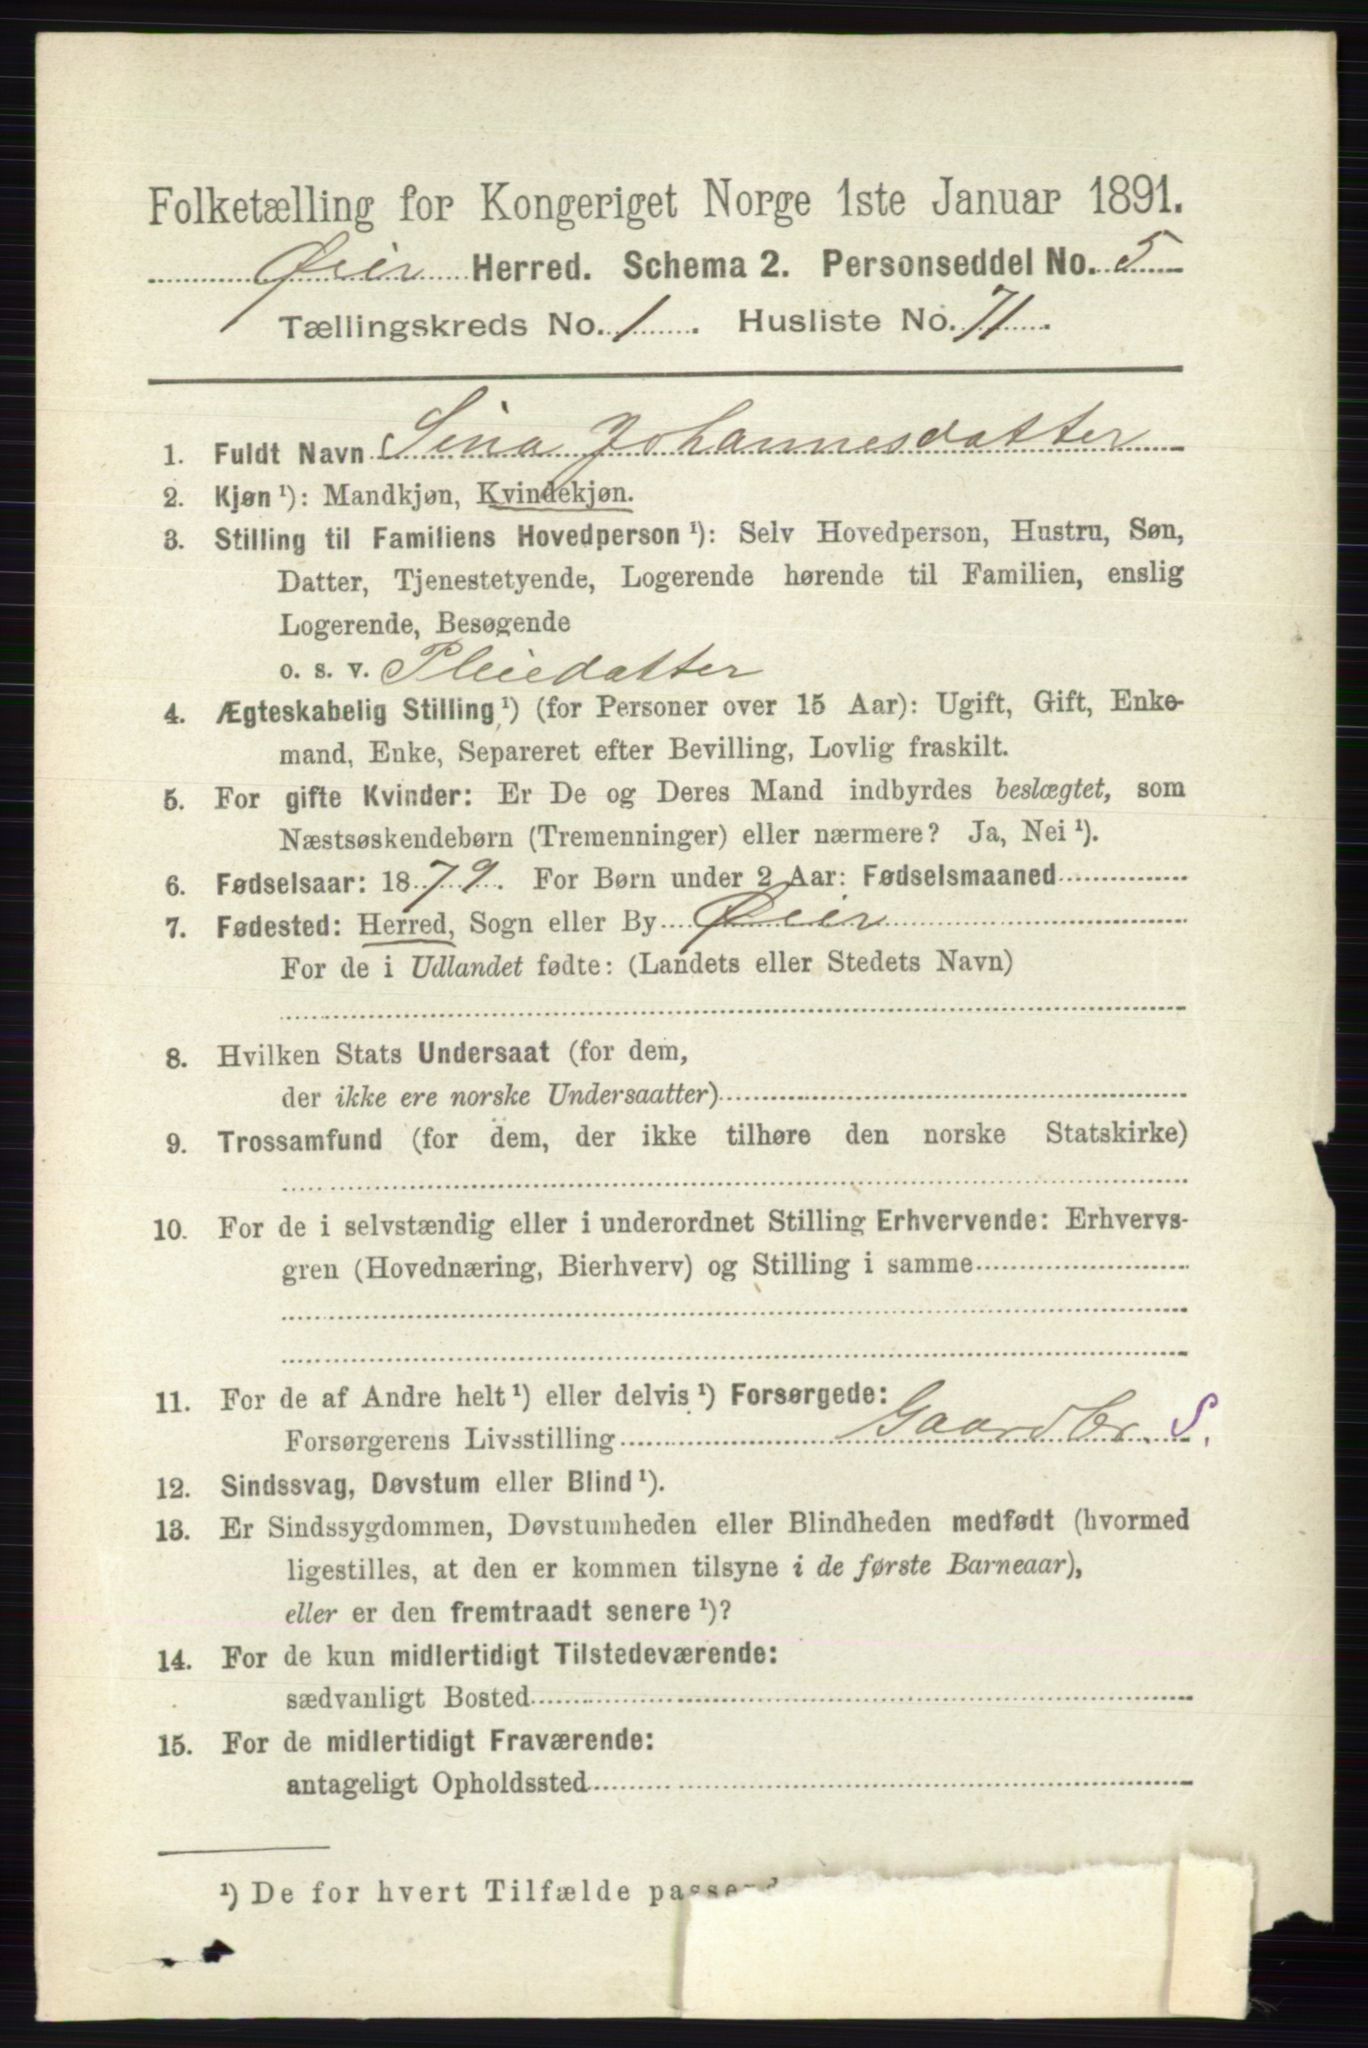 Folketælling for Kongeriget Norge 1ste Januar 1891.
Øier Herred. Schema 2. Personseddel No. 5
Tællingskreds No. 1. Husliste No. 71.
1. Fuldt Navn Sina Johannesdatter
2. Kjøn ¹): Mandkjøn, Kvindekjøn.
3. Stilling til Familiens Hovedperson ¹): Selv Hovedperson, Hustru, Søn,
Datter, Tjenestetyende, Logerende hørende til Familien, enslig
Logerende, Besøgende
o. s. v. Pleiedatter
4. Ægteskabelig Stilling ¹) (for Personer over 15 Aar): Ugift, Gift, Enke-
mand, Enke, Separeret efter Bevilling, Lovlig fraskilt.
5. For gifte Kvinder: Er De og Deres Mand indbyrdes beslægtet, som
Næstsøskendebørn (Tremenninger) eller nærmere? Ja, Nei ¹).
6. Fødselsaar: 1879. For Børn under 2 Aar: Fødselsmaaned
7. Fødested: Herred, Sogn eller By Øier
For de i Udlandet fødte: (Landets eller Stedets Navn)
8. Hvilken Stats Undersaat (for dem,
der ikke ere norske Undersaatter)
9. Trossamfund (for dem, der ikke tilhøre den norske Statskirke)
10. For de i selvstændig eller i underordnet Stilling Erhvervende: Erhvervs-
gren (Hovednæring, Bierhverv) og Stilling i samme
11. For de af Andre helt ¹) eller delvis ¹) Forsørgede:
Forsørgerens Livsstilling Gaardbr. S.
12. Sindssvag, Døvstum eller Blind ¹).
13. Er Sindssygdommen, Døvstumheden eller Blindheden medfødt (hvormed
ligestilles, at den er kommen tilsyne i de første Barneaar),
eller er den fremtraadt senere ¹)?
14. For de kun midlertidigt Tilstedeværende:
sædvanligt Bosted
15. For de midlertidigt Fraværende:
antageligt Opholdssted
¹) De for hvert Tilfælde passend